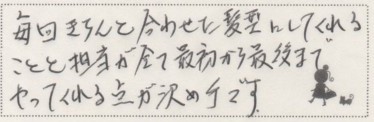 毎回きちんと合わせた髪型にしてくれる
ことと担当が全て最初から最後まで
やってくれる点が決め手です